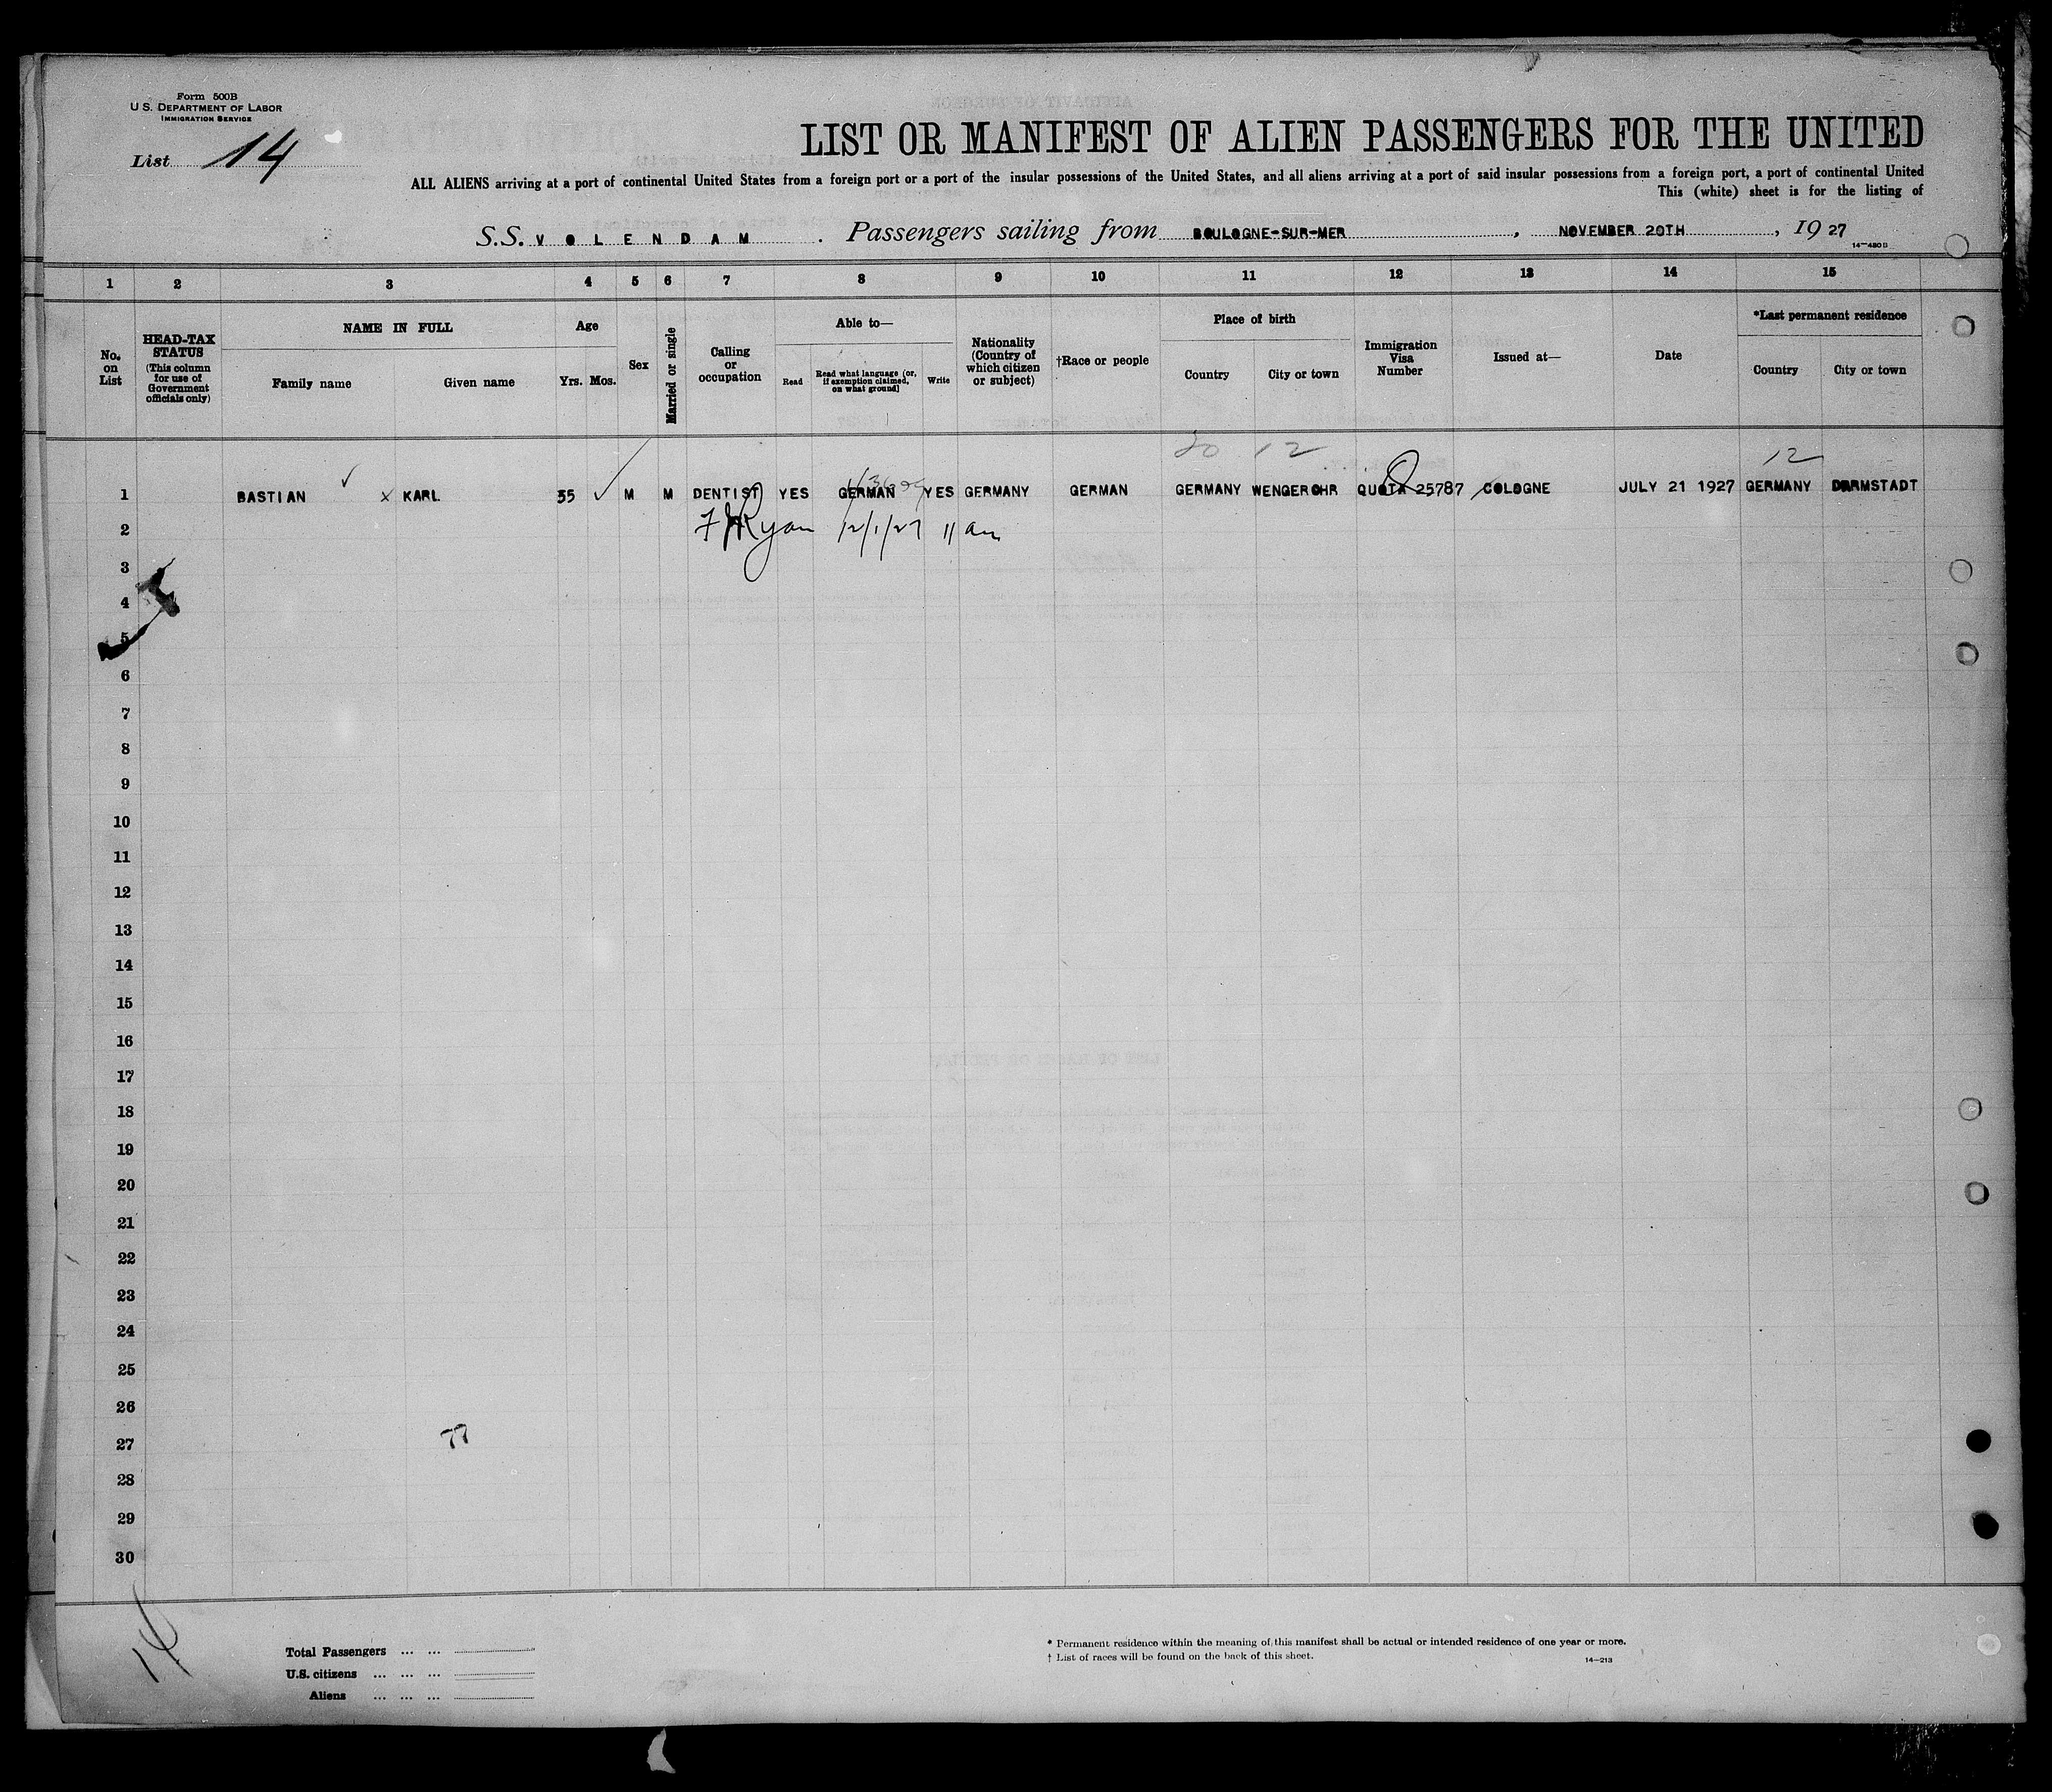 Form 500B
U S. DEPARTMENT OF LABOR
IMMIGRATION SERVICE
List 14
LIST OR MANIFEST OF ALIEN PASSENGERS FOR THE UNITED
ALL ALIENS arriving at a port of continental United States from a foreign port or a port of the insular possessions of the United States, and all aliens arriving at a port of said insular possessions from a foreign port, a port of continental United
This (white) sheet is for the listing of
S.S. VOLENDAM . Passengers sailing from BOULOGNE-SUR-MER , NOVEMBER 20TH , 19 27
14-480 B
1 2 3 4 5 6 7 8 9 10 11 12 13 14 15
No. on List
HEAD-TAX STATUS (This column for use of Government officials only)
NAME IN FULL
Family name Given name
Age
Yrs. Mos.
Sex
Married or single
Calling or occupation
Able to—
Read
Read what language (or, if exemption claimed, on what ground)
Write
Nationality (Country of which citizen or subject)
†Race or people
Place of birth
Country City or town
Immigration Visa Number
Issued at—
Date
*Last permanent residence
Country City or town
20 12 12
1 BASTIAN x KARL 35 M M DENTIST YES GERMAN YES GERMANY GERMAN GERMANY WENGEROHR QUOTA 25787 COLOGNE JULY 21 1927 GERMANY DARMSTADT
2 F J Ryan 12/1/27 11 am
3
4
5
6
7
8
9
10
11
12
13
14
15
16
17
18
19
20
21
22
23
24
25
26
27 77
28
29
30
14
Total Passengers ... ...
U.S. citizens ... ... ...
Aliens ... ... ...
* Permanent residence within the meaning of this manifest shall be actual or intended residence of one year or more.
† List of races will be found on the back of this sheet.
14-213